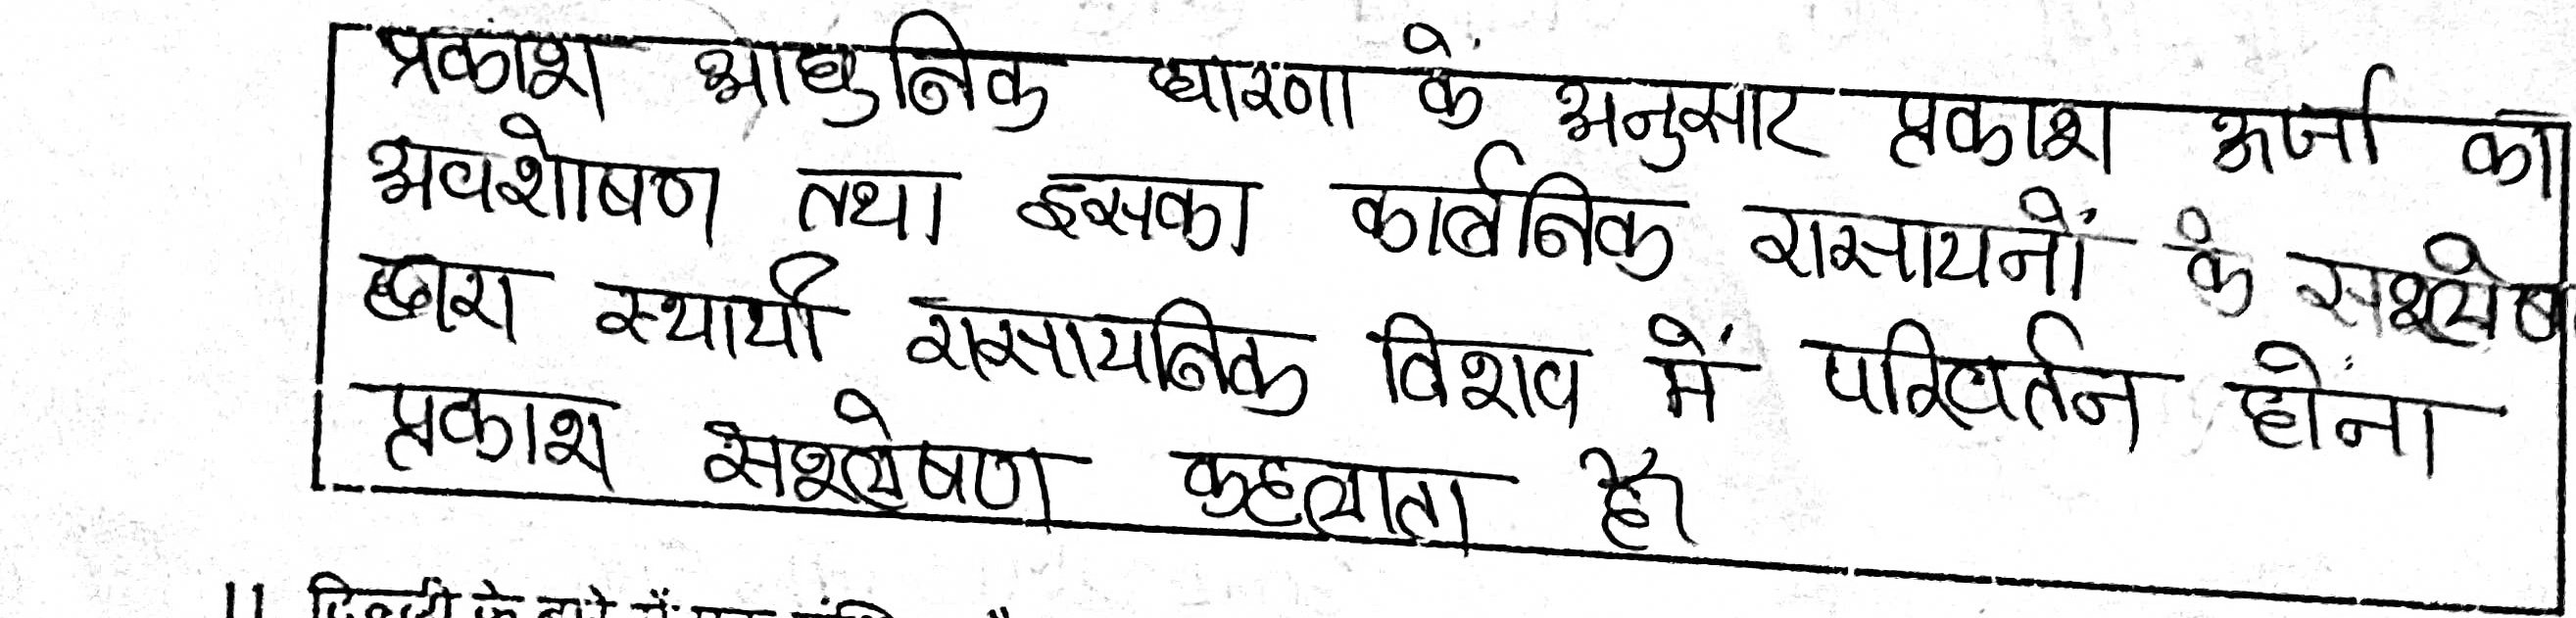 प्रकाश आधुनिक धारणा के अनुसार प्रकाश ऊर्जा का
अवशोषण तथा इसका कार्बनिक रासायनों के सश्लेष
द्वारा स्थायी रासायनिक विशव में परिवर्तन होंना
प्रकाश सश्लेषण कहलाता है।
11